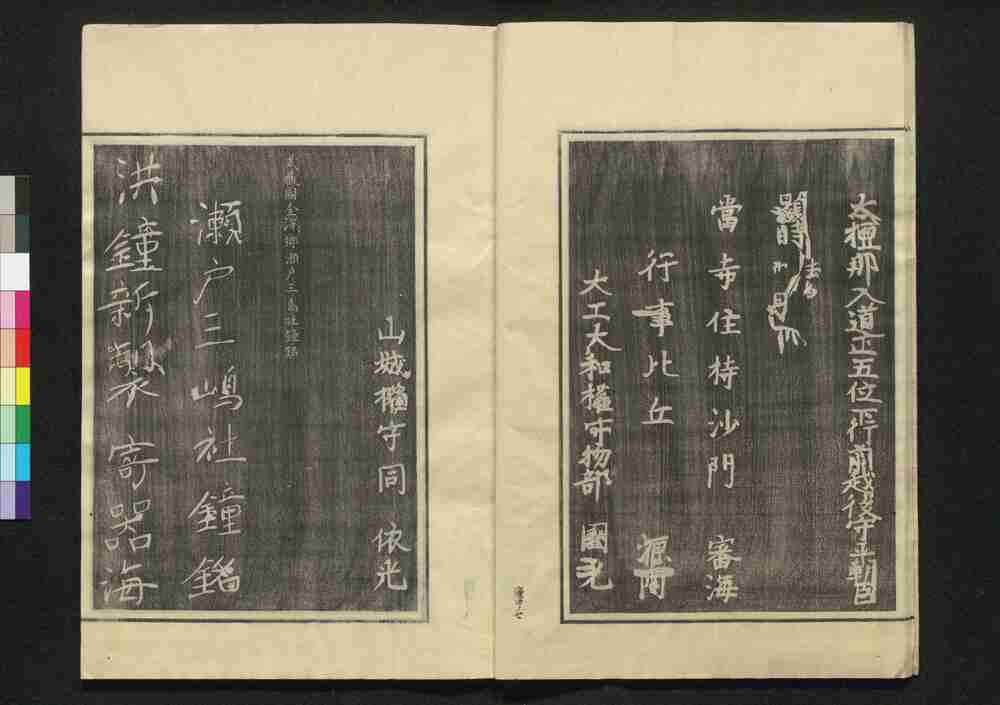 大檀那入道正五位下行前越後守平朝臣
當寺住持沙門 審海
行事比丘 源阿
大工大和權守物部 國光
山城權守同 依光
武藏國金澤郷瀬戸三島社鐘銘
瀬戸三嶋社鐘銘
洪鐘新製 寄器海